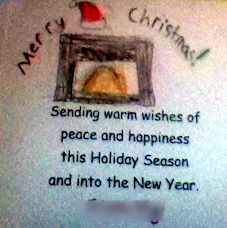 Merry Christmas!
Sending warm wishes of
peace and happiness
this Holiday Season
and into the New Year.